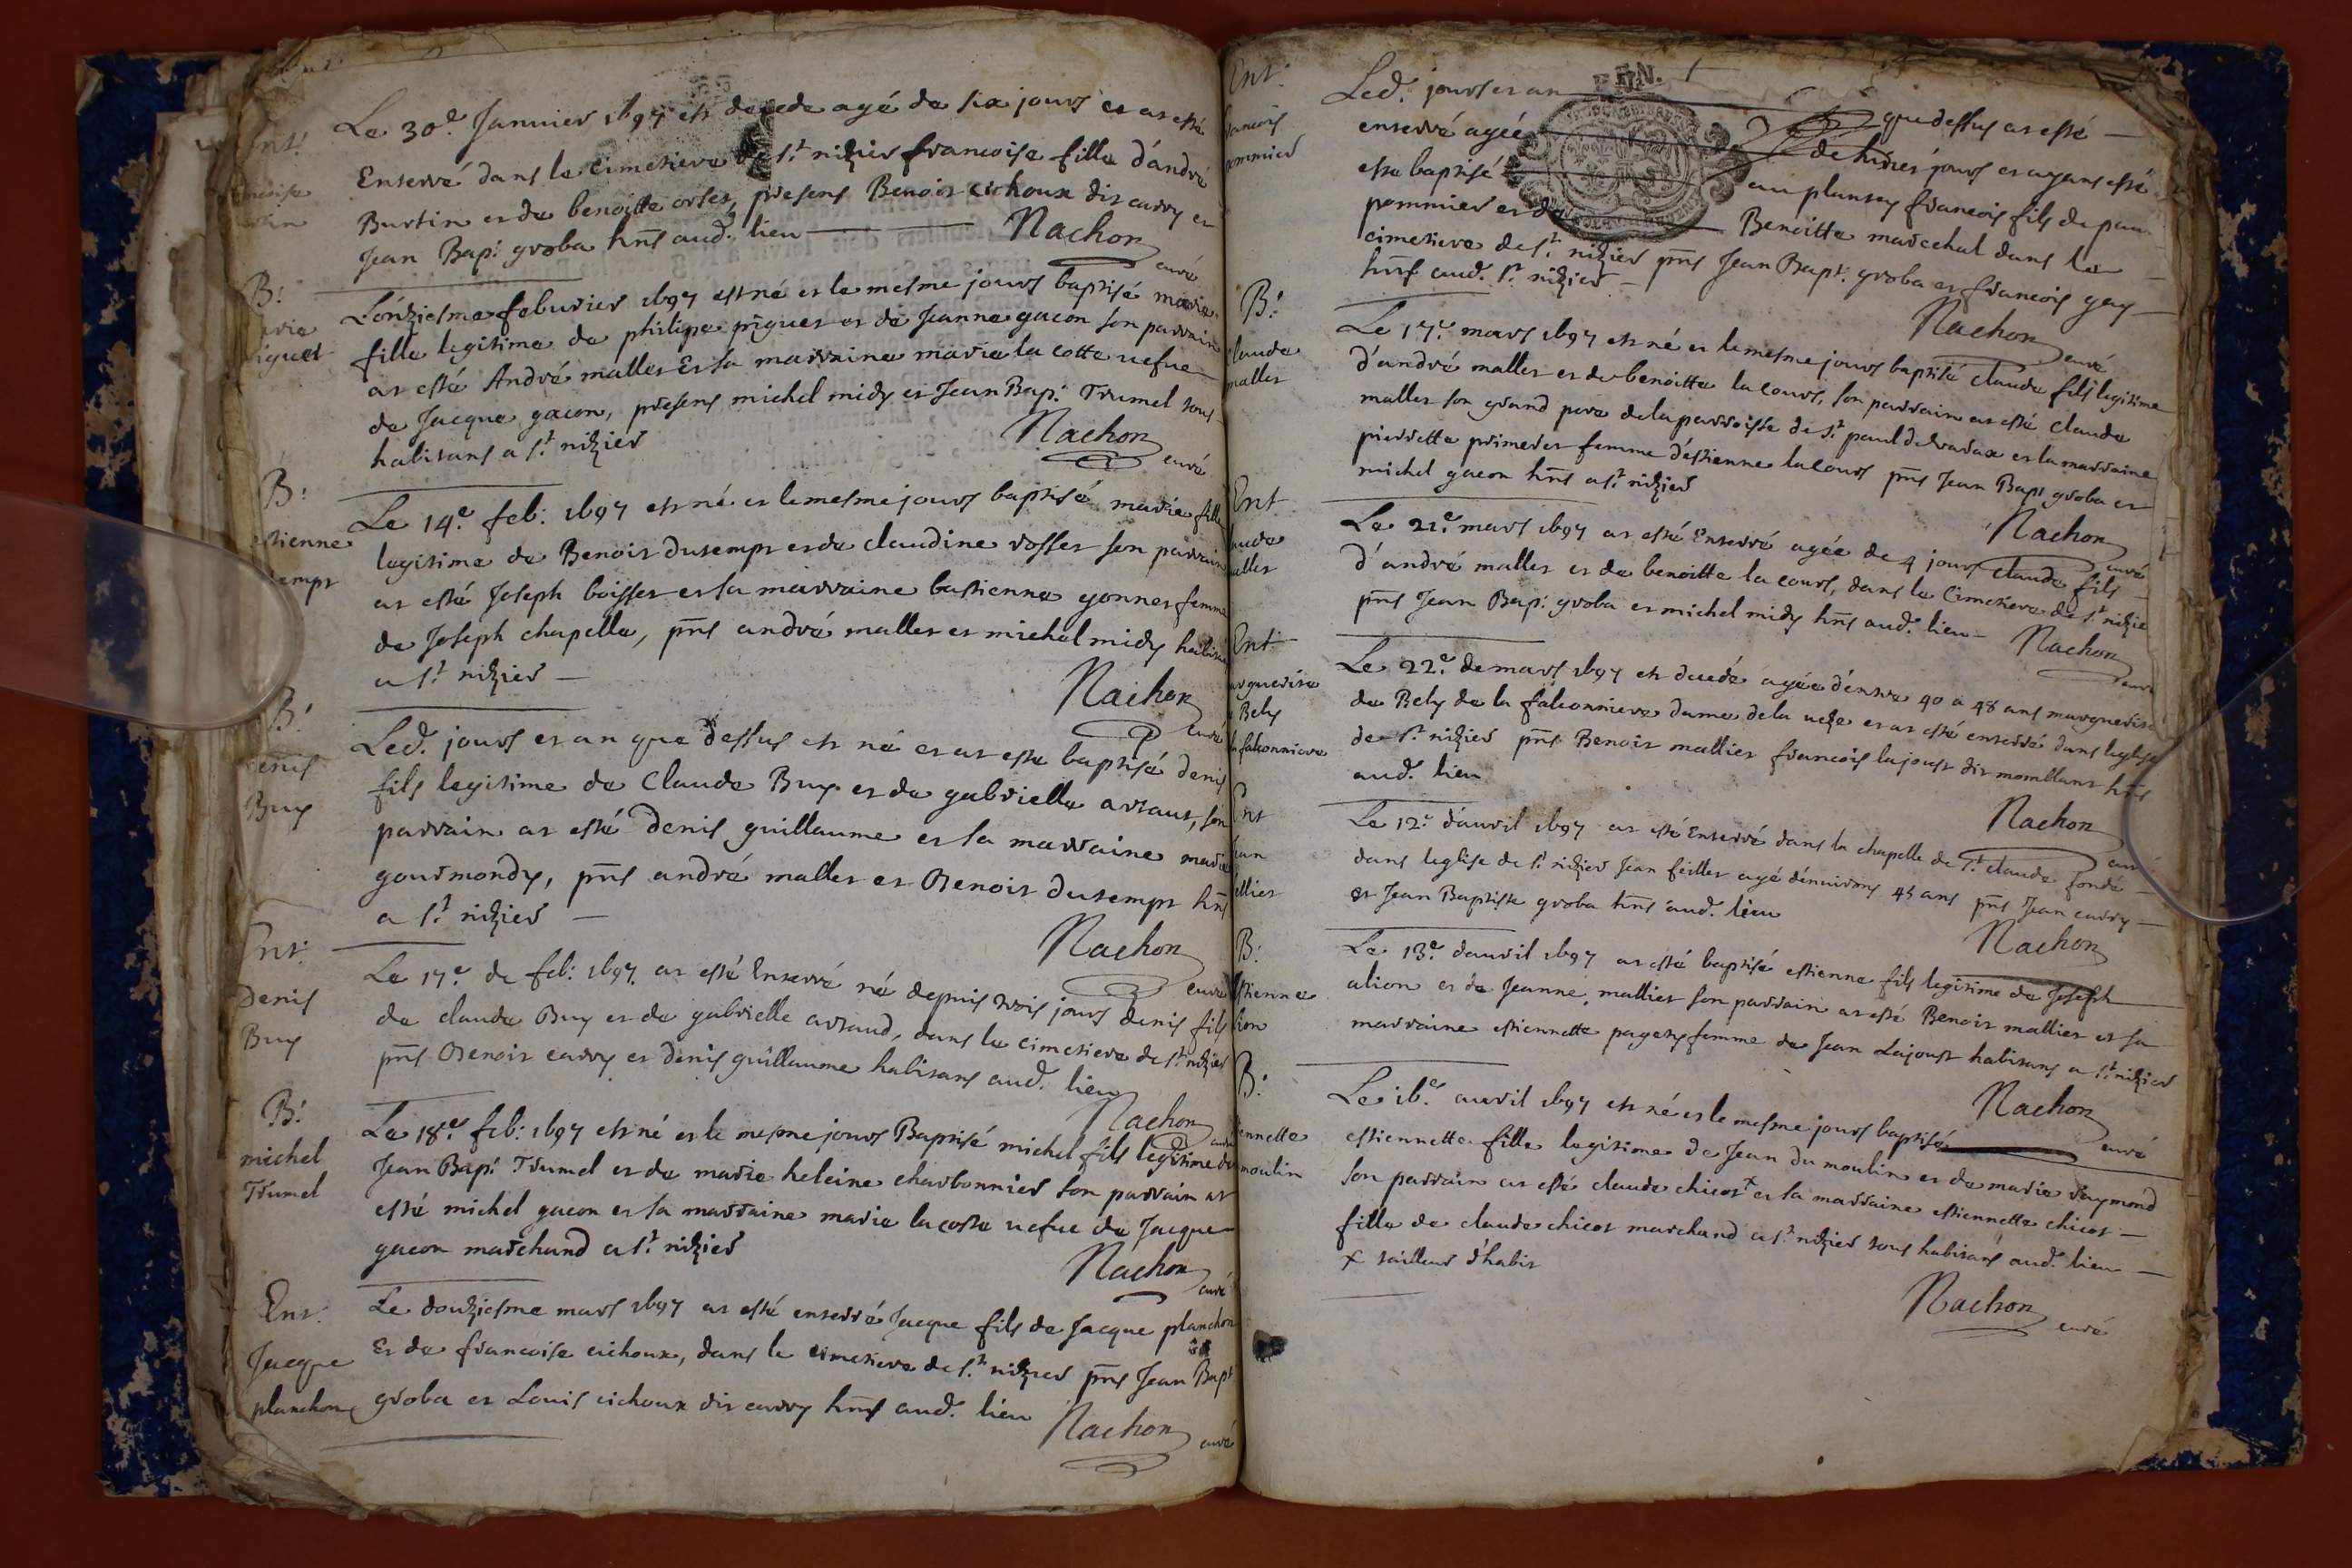 Ent.
Le 30.e Januier 1697 est decede agé de six jours et at esté
Enterré dans le Cimetiere de St. nizier francoise fille d'andré
Burtin et de benoitte ortet, presens Benoit cichoux dit curry et
Jean Bap. groba hns aud. lieu
Nachon curé
B.
L'onziesme feburier 1697 est né et le mesme jours baptisé marie
fille legitime de philipe piguet et de Jeanne gacon son parrain
at esté André mallet Et la marraine marie la cotte uefue
de Jacque gacon, presens michel midy et Jean Bap. Trumel tous
habitans a St. nizier
Nachon curé
B.
estienne
Le 14.e feb. 1697 est né et le mesme jours baptisé marie fille
legitime de Benoit dutempt et de claudine rosset son parrain
at esté Joseph boisset et la marraine bastienne gonnet femme
de Joseph chapelle, pns andré mallet et michel midy habitans
a St. nizier
Nachon curé
B.
denis
Buy
Led. jours et an que dessus est né et at esté baptisé denis
fils legitime de Claude Buy et de gabrielle artaut, son
parrain at esté denis guillaume et la marraine marie
gourmondy, pns andré mallet et Benoit dutempt hns
a St. nizier
Nachon curé
Ent.
Denis
Buy
Le 17.e de feb. 1697 at esté Enterré né depuis trois jours denis fils
de claude Buy et de gabrielle artaud, dans le cimetiere de St. nizier
pns Benoit curry et denis guillaume habitans aud. lieu
Nachon curé
B.
michel
Trumel
Le 18.e feb. 1697 est né et le mesme jours Baptisé michel fils legitime de
Jean Bap. Trumel et de marie heleine charbonnier son parrain at
esté michel gacon et la marraine marie lacoste uefue de Jacque
gacon marchand a St. nizier
Nachon curé
Ent.
Jacque
planchon
Le douziesme mars 1697 at esté enterré Jacque fils de Jacque planchon
Et de francoise cichoux, dans le cimetiere de St. nizier pns Jean Bapt
groba et Louis cichoux dit curry hns aud. lieu
Nachon curé
Ent.
francois
pommier
Led. jours et an que dessus at esté
enterré agée de huict jours et ayant esté
esté baptisé au plantey francois fils de
pommier et de Benoitte marechal dans le
cimetiere de St. nizier pns Jean Bapt. groba et francois gay
hns aud. St. nizier
Nachon curé
B.
claude
mallet
Le 17.e mars 1697 est né et le mesme jours baptisé claude fils legitime
d'andré mallet et de benoitte la cours, son parrain at esté claude
mallet son grand pere de la parroisse de St. paul de varax et la marraine
pierrette primeret femme d'estienne la cours pns Jean Bapt groba et
michel gacon hns a St. nizier
Nachon curé
Ent.
claude
mallet
Le 21.e mars 1697 at esté Enterré agée de 4 jours claude fils
d'andré mallet et de benoitte la cours, dans le Cimetiere de St. nizier
pns Jean Bap. groba et michel midy hns aud. lieu
Nachon curé
Ent.
marguerite
Bely
la falconniere
Le 22.e de mars 1697 est decedé agée d'entre 40 a 48 ans marguerite
de Bely de la falconniere dame de la ueze et at esté enterré dans leglise
de St. nizier pns Benoit mallier francois lajoust dit momblant hns
aud. lieu
Nachon curé
Ent
Jean
Le 12.e d'auril 1697 at esté Enterré dans la chapelle de St. claude fondé
dans leglise de St. nizier Jean feillet agé d'enuirons 45 ans pns Jean curry
et Jean Baptiste groba hns aud. lieu
Nachon
B.
estienne
Le 13.e d'auril 1697 at esté baptisé estienne fils legitime de Joseph
alion et de Jeanne mallier son parrain at esté Benoit mallier et sa
marraine estiennette pagety femme de Jean Lajoust habitans a St. nizier
Nachon curé
B.
estiennette
moulin
Le 16.e auril 1697 est né et le mesme jours baptisé
estiennette fille legitime de Jean du moulin et de marie raymond
son parrain at esté claude chicot x et la marraine estiennette chicot
fille de claude chicot marchand a St. nizier tous habitans aud. lieu
x tailleur d'habit
Nachon curé